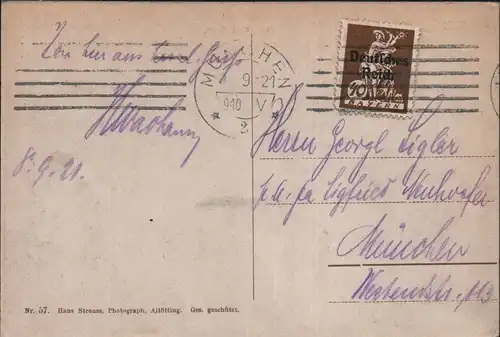 Von hier aus Gruß
8.9.21.
MÜNCHEN
9 21
9-10 V
2
Deutsches
Reich
BAYERN
Herrn Georgl Zigler
p. A. fa Sigfried Neuhofer
München
Westendstr. 113
Nr. 57. Hans Strauss, Photograph, Altötting. Ges. geschützt.